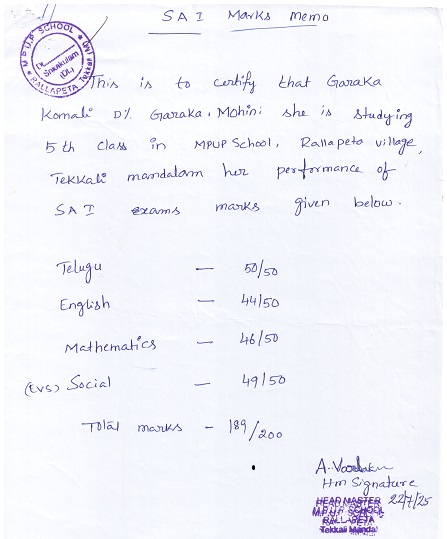 SA I Marks Memo
M.P.U.P. SCHOOL
Srikakulam
(Dt.)
RALLAPETA
Tekkali (M)
This is to certify that Garaka
Komali D/. Garaka. Mohini she is studying
5th class in MPUP School, Rallapeta village,
Tekkali mandalam her performance of
SA I exams marks given below.
Telugu — 50/50
English — 44/50
Mathematics — 46/50
(EVS) Social — 49/50
Total marks - 189/200
Hm Signature
HEAD MASTER 22/7/25
M.P.U.P. SCHOOL
RALLAPETA
Tekkali Mandal